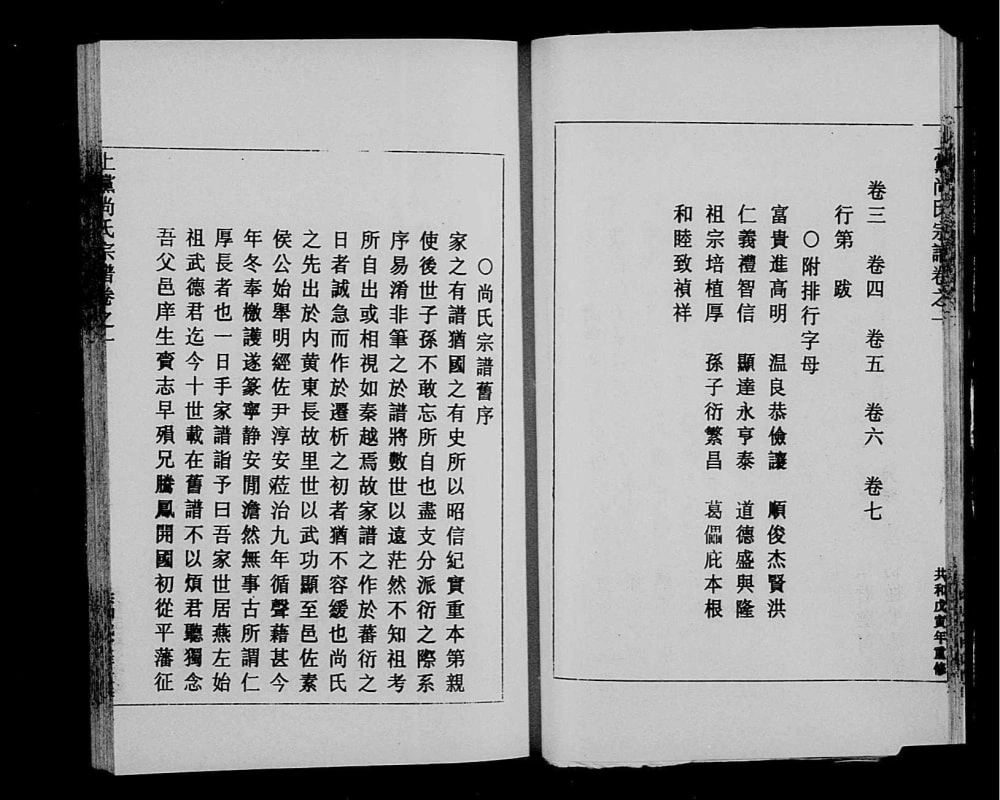 上黨尚氏宗譜卷之一
卷三　卷四　卷五　卷六　卷七
行第　跋
〇附排行字母
富貴進高明　温良恭儉讓　順俊杰賢洪
仁義禮智信　顯達永亨泰　道德盛與隆
祖宗培植厚　孫子衍繁昌　葛藟庇本根
和睦致禎祥
共和戊寅年重修
〇尚氏宗譜舊序
家之有譜猶國之有史所以昭信紀實重本第親
使後世子孫不敢忘所自也盡支分派衍之際系
序易淆非筆之於譜將數世以遠茫然不知祖考
所自出或相視如秦越焉故家譜之作於蕃衍之
日者誠急而作於遷析之初者猶不容緩也尚氏
之先出於内黄東長故里世以武功顯至邑佐素
侯公始舉明經佐尹淳安蒞治九年循聲藉甚今
年冬奉檄護遂篆寧静安閒澹然無事古所謂仁
厚長者也一日手家譜詣予曰吾家世居燕左始
祖武德君迄今十世載在舊譜不以煩君聽獨念
吾父邑庠生賫志早殞兄騰鳳開國初從平藩征
上黨尚氏宗譜卷之一